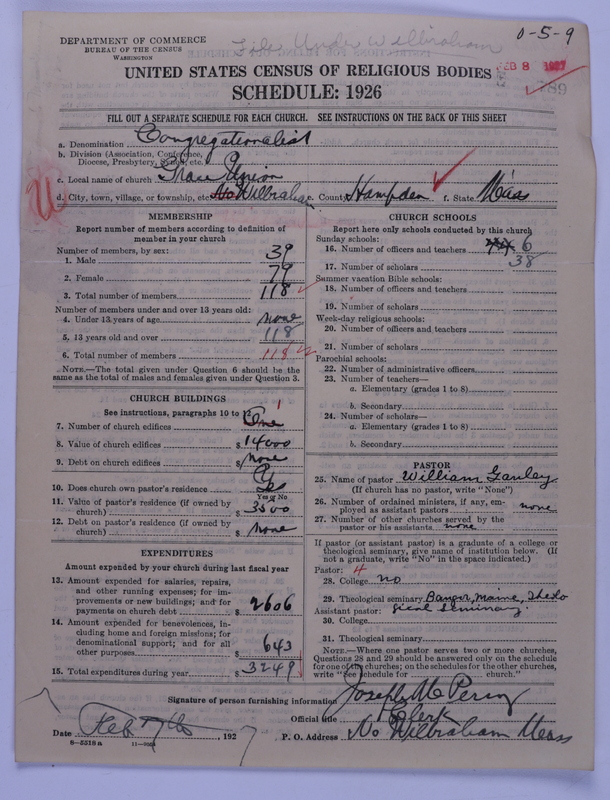 DEPARTMENT OF COMMERCE
BUREAU OF THE CENSUS
WASHINGTON
File Under Wilbraham
0-5-9
FEB 8 1927
789
UNITED STATES CENSUS OF RELIGIOUS BODIES
SCHEDULE: 1926
FILL OUT A SEPARATE SCHEDULE FOR EACH CHURCH. SEE INSTRUCTIONS ON THE BACK OF THIS SHEET
a. Denomination Congregationalist
b. Division (Association, Conference, Diocese, Presbytery, Synod, etc.
c. Local name of church Grace Union
d. City, town, village, or township, etc. No Wilbraham e. County Hampden f. State Mass
MEMBERSHIP
Report number of members according to definition of
member in your church
Number of members, by sex:
1. Male 39
2. Female 79
3. Total number of members 118
Number of members under and over 13 years old:
4. Under 13 years of age none
5. 13 years old and over 118
6. Total number of members 118
NOTE.—The total given under Question 6 should be
same as the total of males and females given under Question 3.
CHURCH BUILDINGS
See instructions, paragraphs 10 to 12
7. Number of church edifices One 1
8. Value of church edifices $ 14000
9. Debt on church edifices $ None
10. Does church own pastor's residence Yes
Yes or No
11. Value of pastor's residence (if owned by
church) $ 3500
12. Debt on pastor's residence (if owned by
church) $ None
EXPENDITURES
Amount expended by your church during last fiscal year
13. Amount expended for salaries, repairs,
and other running expenses; for im-
provements or new buildings; and for
payments on church debt $ 2606
14. Amount expended for benevolences, in-
cluding home and foreign missions; for
denominational support; and for all
other purposes $ 643
15. Total expenditures during year $ 3249
CHURCH SCHOOLS
Report here only schools conducted by this church
Sunday schools:
16. Number of officers and teachers 6
17. Number of scholars 38
Summer vacation Bible schools:
18. Number of officers and teachers
19. Number of scholars
Week-day religious schools:
20. Number of officers and teachers
21. Number of scholars
Parochial schools:
22. Number of administrative officers
23. Number of teachers—
a. Elementary (grades 1 to 8)
b. Secondary
24. Number of scholars—
a. Elementary (grades 1 to 8)
b. Secondary
PASTOR
25. Name of pastor William Ganley
(If church has no pastor, write "None")
26. Number of ordained ministers, if any, em-
ployed as assistant pastors none
27. Number of other churches served by the
pastor or his assistants none
If pastor (or assistant pastor) is a graduate of a college or
theological seminary, give name of institution below. (If
not a graduate, write "No" in the space indicated.)
Pastor: 4
28. College no
29. Theological seminary Bangor, Maine, Theolo
Assistant pastor: gical Seminary.
30. College
31. Theological seminary
NOTE.—Where one pastor serves two or more churches,
Questions 28 and 29 should be answered only on the schedule
for one of the churches; on schedules for the other churches,
write "See schedule for church."
Signature of person furnishing information Joseph M Perry
Official title Clerk
Date Feb 7th, 1927 P. O. Address No Wilbraham Mass
8-5518a 11-9053